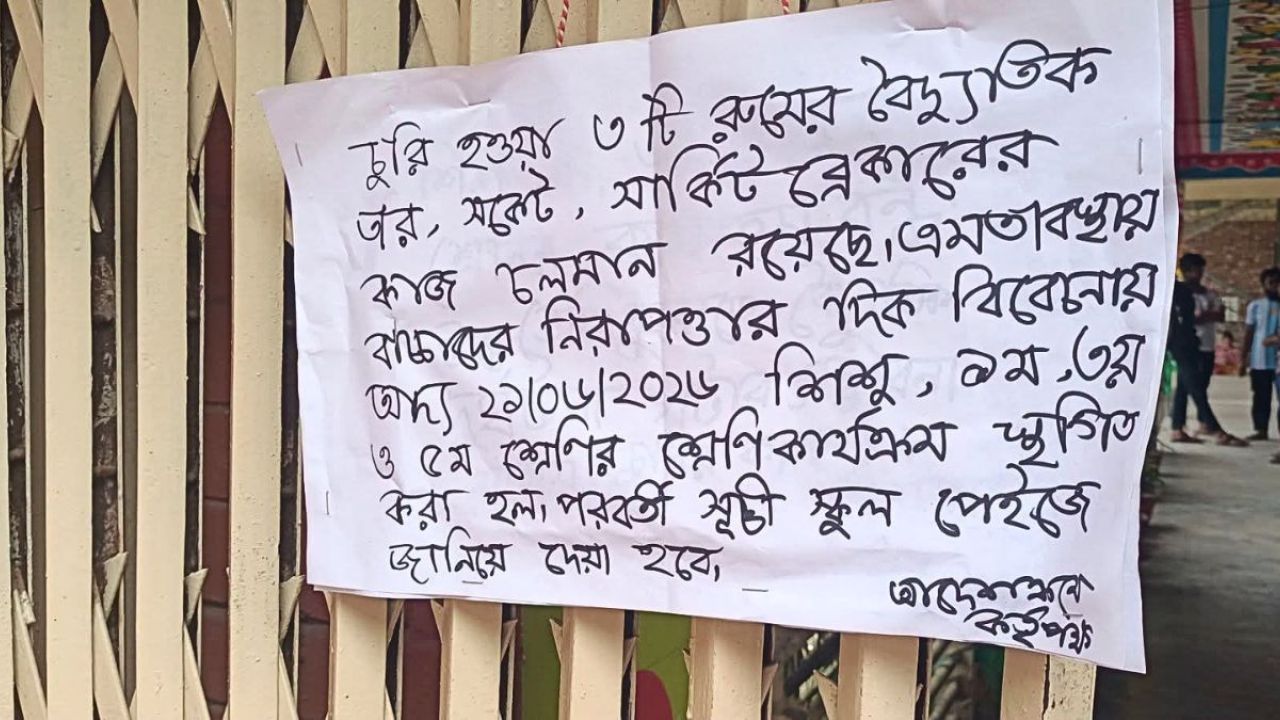 চুরি হওয়া ৩টি রুমের বৈদ্যুতিক
তার, সকেট, সার্কিট ব্রেকারের
কাজ চলমান রয়েছে। এমতাবস্থায়
বাচ্চাদের নিরাপত্তার দিক বিবেচনায়
অদ্য ২১/০৬/২০২৬ শিশু, ১ম, ৩য়
ও ৫ম শ্রেণির শ্রেণি কার্যক্রম স্থগিত
করা হল। পরবর্তী সূচী স্কুল পেইজে
জানিয়ে দেয়া হবে।
আদেশক্রমে
কর্তৃপক্ষ